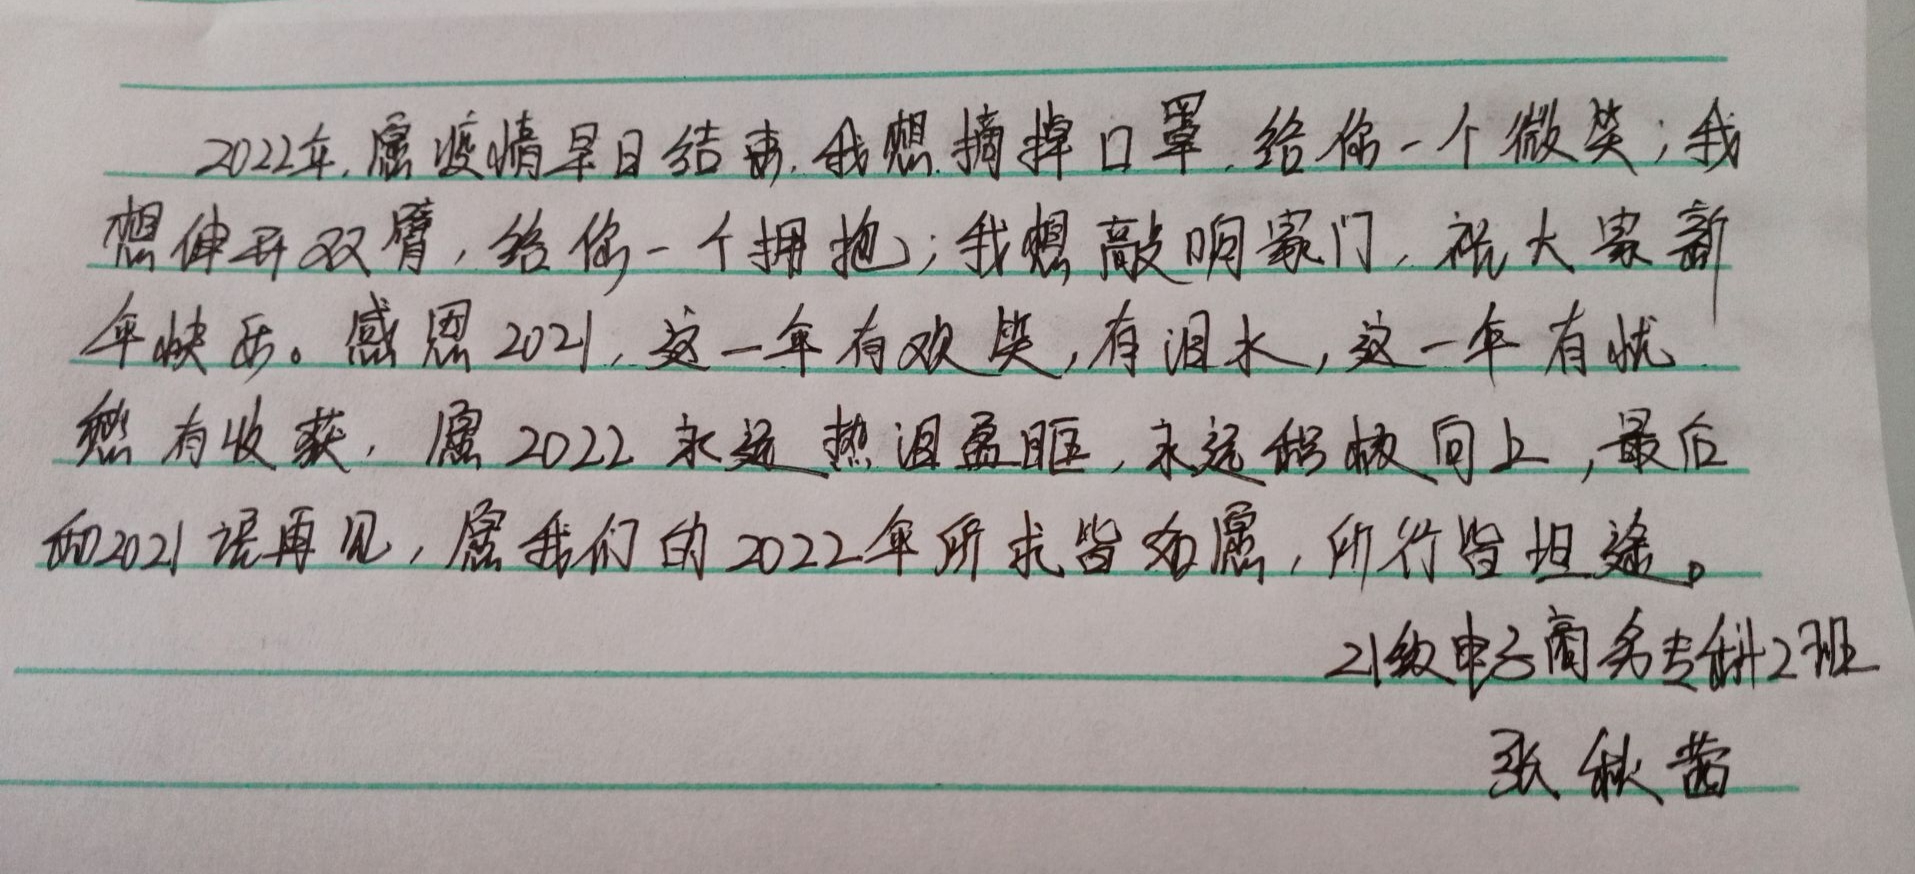 2022年,愿疫情早日结束.我想摘掉口罩,给你一个微笑;我
想伸开双臂,给你一个拥抱;我想敲响家门,祝大家新
年快乐。感恩2021,这一年有欢笑,有泪水,这一年有忧
愁有收获,愿2022永远热泪盈眶,永远积极向上,最后
和2021说再见,愿我们的2022年所求皆如愿,所行皆坦途。
21级电子商务专科2班
张秋茜